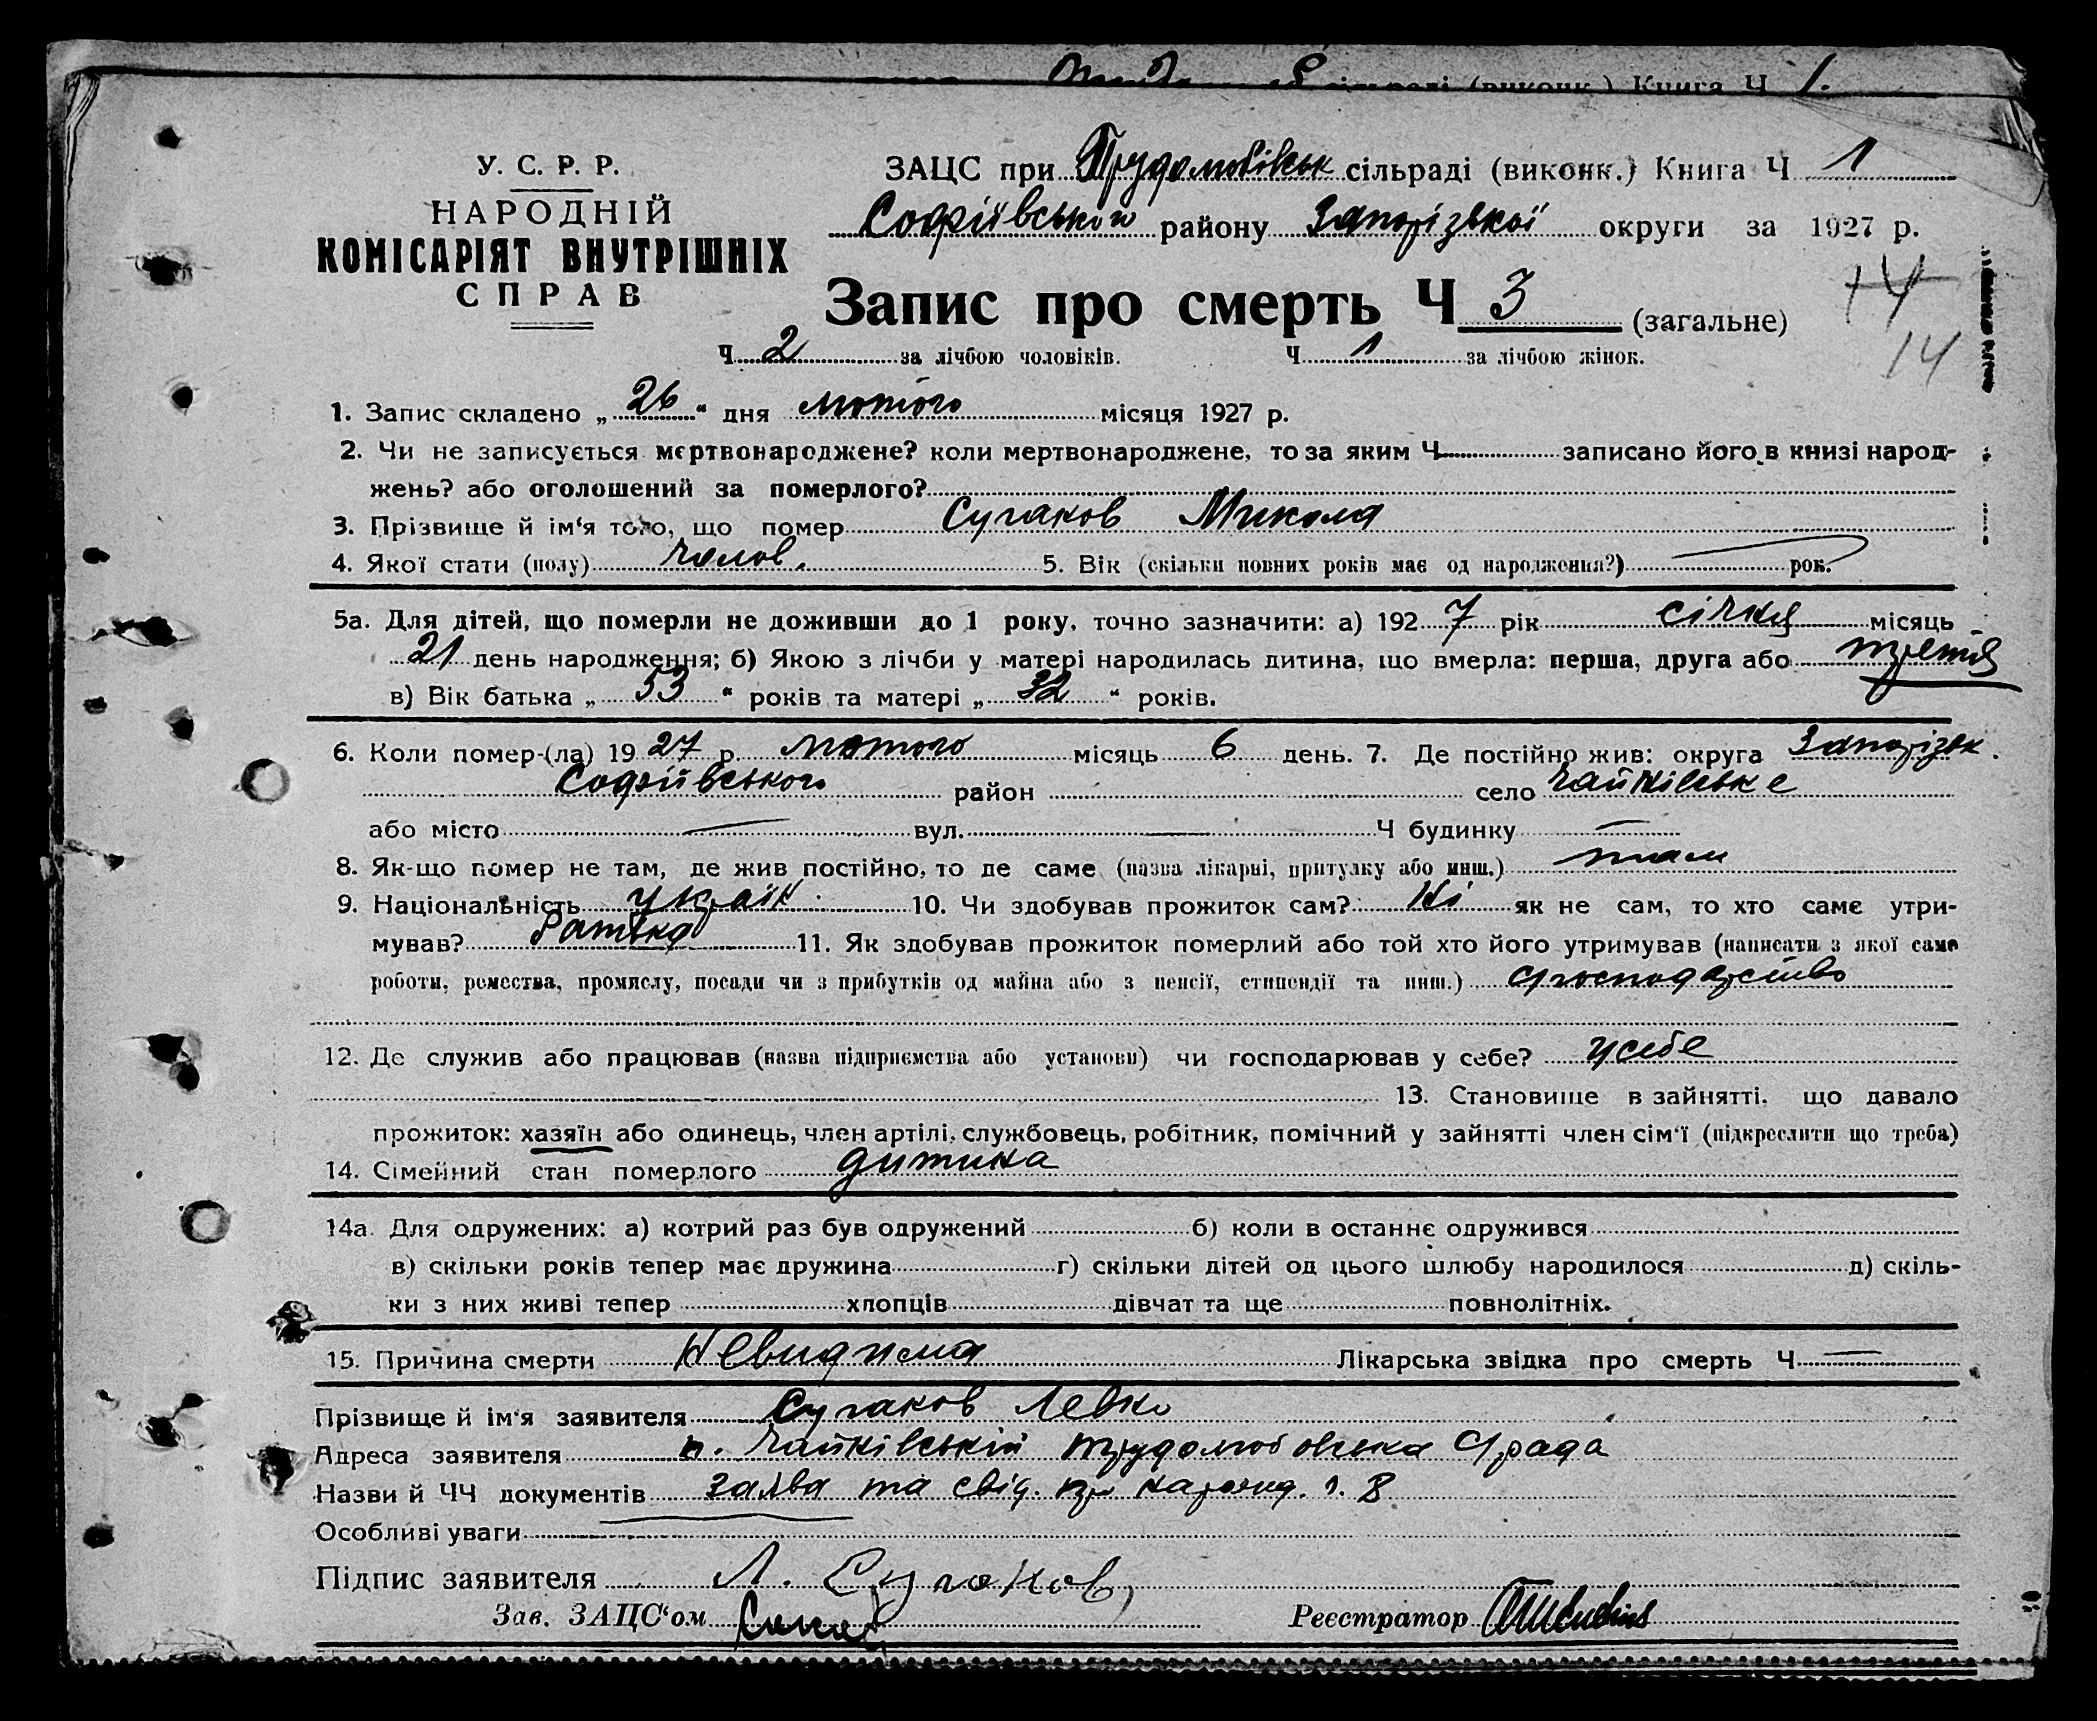 сільраді (виконк.) Книга Ч 1.
У. С. Р. Р.
НАРОДНІЙ
КОМІСАРІЯТ ВНУТРІШНІХ
СПРАВ
ЗАЦС при Трудолюбівськ сільраді (виконк.) Книга Ч 1
Софіївського району Запорізької округи за 1927 р.
Запис про смерть Ч 3 (загальне)
14
14
Ч 2 за лічбою чоловіків. Ч 1 за лічбою жінок.
1. Запис складено „ 26 “ дня лютого місяця 1927 р.
2. Чи не записується мертвонароджене? коли мертвонароджене, то за яким Ч записано його в книзі народ-
жень? або оголошений за померлого?
3. Прізвище й ім‘я того, що помер Сугаков Микола
4. Якої стати (полу) чолов. 5. Вік (скільки повних років має од народження?) рок.
5а. Для дітей, що померли не доживши до 1 року, точно зазначити: а) 1927 рік січня місяць
21 день народження; б) Якою з лічби у матері народилась дитина, що вмерла: перша, друга або третя
в) Вік батька „ 53 “ років та матері „ 32 “ років.
6. Коли помер-(ла) 1927 р. лютого місяць 6 день. 7. Де постійно жив: округа Запорізьк.
Софіївського район село Чайківське
або місто — вул. — Ч будинку —
8. Як-що помер не там, де жив постійно, то де саме (назва лікарні, притулку або инш.) там
9. Національність україн. 10. Чи здобував прожиток сам? Ні як не сам, то хто саме утри-
мував? 11. Як здобував прожиток померлий або той хто його утримував (написати з якої саме
роботи, ремества, промислу, посади чи з прибутків од майна або з пенсії, стипендії та инш.) с/господарство
12. Де служив або працював (назва підприємства або установи) чи господарював у себе? у себе
13. Становище в зайнятті, що давало
прожиток: хазяїн або одинець, член артілі, службовець, робітник, помічний у зайнятті член сім‘ї (підкреслити що треба)
14. Сімейний стан померлого дитина
14а. Для одружених: а) котрий раз був одружений б) коли в останнє одружився
в) скільки років тепер має дружина г) скільки дітей од цього шлюбу народилося д) скіль-
ки з них живі тепер хлопців дівчат та ще повнолітніх.
15. Причина смерти Невидима Лікарська звідка про смерть Ч —
Прізвище й ім‘я заявителя Сугаков Левко
Адреса заявителя п. Чайківській Трудолюбовська с/рада
Назви й ЧЧ документів заява та свід. про народж. ч. 8
Особливі уваги
Підпис заявителя Л. Сугаков
Зав. ЗАЦС‘ом Реєстратор